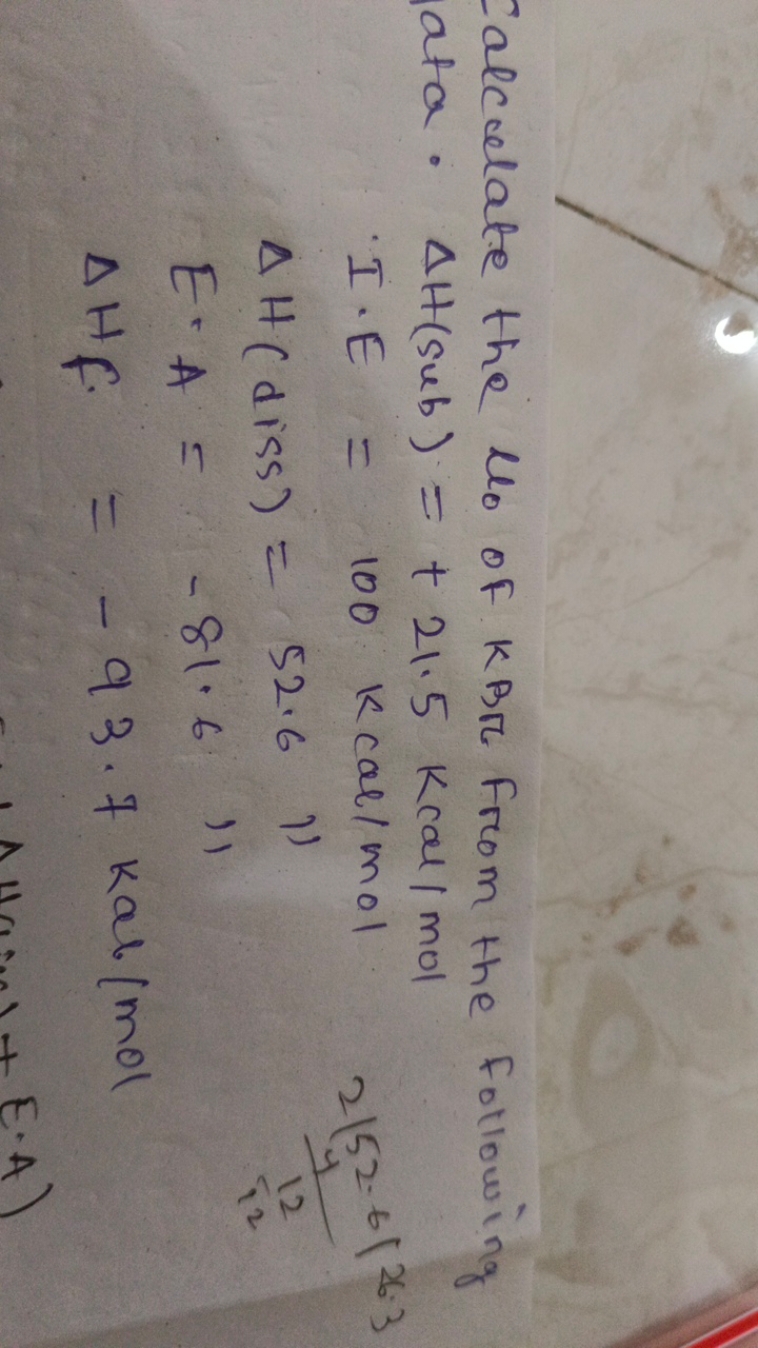 Calculate the U₀ of KBr from the following
data. ΔH(sub) = + 21.5 Kcal/mol
I.E = 100 Kcal/mol
ΔH(diss) = 52.6 "
E.A = -81.6 "
ΔHf = -93.7 Kal/mol
2)52.6(26.3
4
12
12
+ E.A)